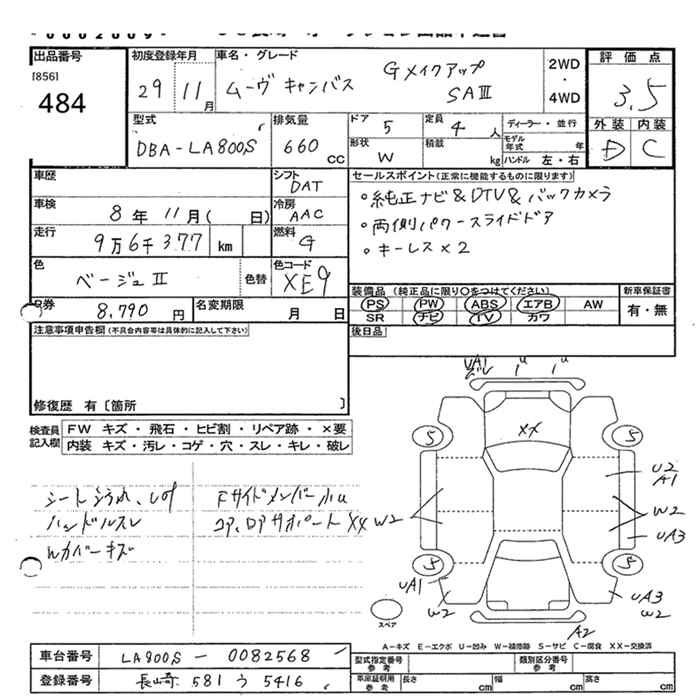 出品番号
[856]
484
初度登録年月
29 11月
車名・グレード
ムーヴ キャンバス
Gメイクアップ
SAⅢ
2WD
・
4WD
評価点
3,5
外装 内装
D C
型式
DBA-LA800S
排気量
660 CC
ドア 5
定員 4 人
形状 W
積載 kg
ディーラー・並行
モデル年式 年
ハンドル 左・右
車歴
シフト
DAT
車検 8年 11月( 日)
冷房
AAC
走行 9万6千377 km
燃料
G
色
ベージュⅡ
色替
色コード
XE9
R券 8,790 円
名変期限 月 日
セールスポイント(正常に機能するものに限ります)
○純正ナビ&DTV&バックカメラ
○両側パワースライドドア
○キーレス×2
装備品 (純正品に限り○をつけてください)
PS PW ABS エアB AW
SR ナビ TV カワ
新車保証書
有・無
後日品
注意事項申告欄(不具合内容等は具体的に記入して下さい)
修復歴 有[箇所 ]
検査員記入欄
FW キズ・飛石・ヒビ割・リペア跡・×要
内装 キズ・汚レ・コゲ・穴・スレ・キレ・破レ
ハンドルスレ
FサイドメンバーホU
コア、DアサポートXX
UA1
U U
XX
5 5
U2
A1
W2 W2
UA3
5 5
UA1
W2
UA3
W2
A2
スペア
A-キズ E-エクボ U-凹み W-補修跡 S-サビ C-腐食 XX-交換済
車台番号 LA800S - 0082568
登録番号 長崎 581 う 5416
型式指定番号
参考
類別区分番号
参考
車庫証明用
参考
長さ cm
幅 cm
高さ cm